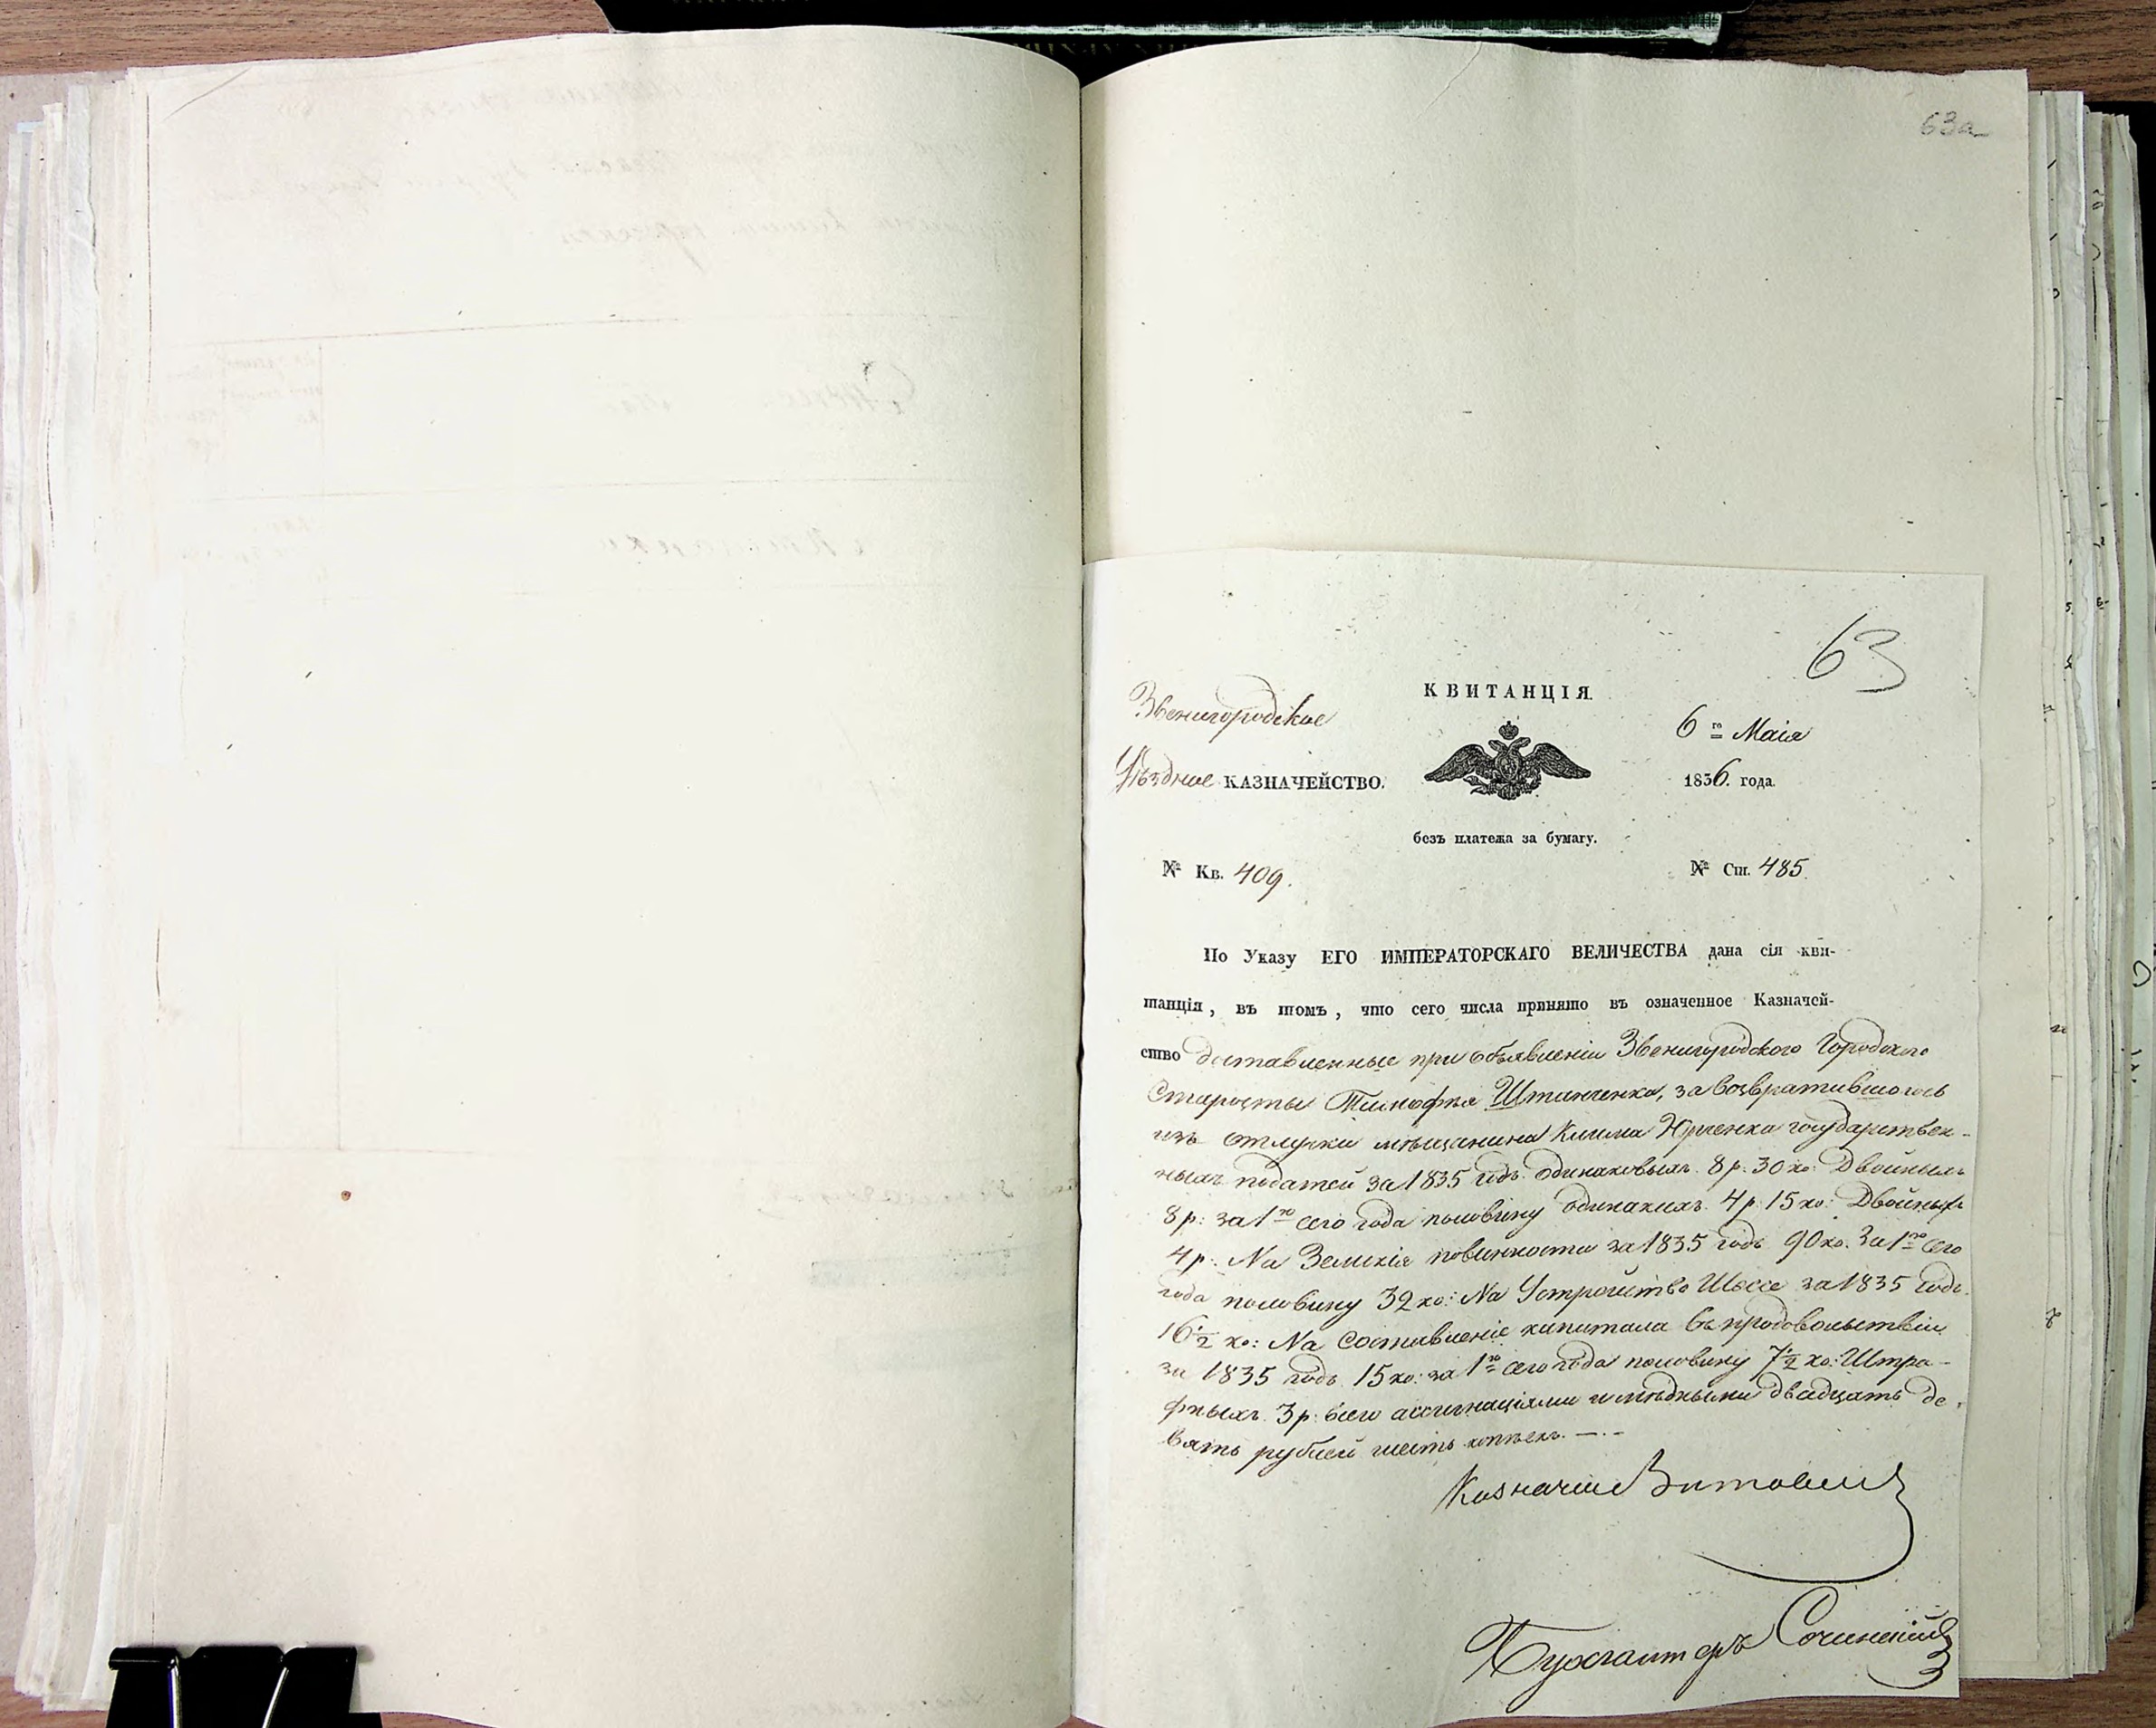 63а
63
КВИТАНЦІЯ.
Звенигородское
6го Маія
Уѣздное КАЗНАЧЕЙСТВО.
1836. года.
безъ платежа за бумагу.
№ Кв. 409.
№ Ст. 485.
По Указу ЕГО ИМПЕРАТОРСКАГО ВЕЛИЧЕСТВА дана сія кви-
танція, въ томъ, что сего числа принято въ означенное Казначей-
ство доставленные при объявленіи Звенигородского Городского
Старосты Тимофѣя за возвратившогось
изъ отлучки мѣщанина Клима Юрченка государствен-
ныхъ податей за 1835 годъ одинаковыхъ 8 р: 30 ко: Двойныхъ
8 р: за 1ю сего года половину одинакихъ 4 р 15 ко: Двойныхъ
4 р: На Земскія повинности за 1835 годъ 90 ко. За 1ю сего
года половину 32 ко: На Устройство Шоссе за 1835 годъ
16 1/2 ко: На Составленіе капитала въ продовольствіи
за 1835 годъ 15 ко: за 1ю сего года половину 7 1/2 ко: Штра-
фныхъ 3 р: всего ассигнаціями и мѣдными двадцать де-
вять рублей шесть копѣекъ. —.–
Казначей
Бухгалтеръ Сочинскій